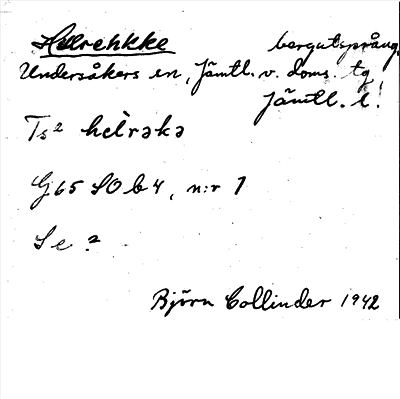 Helrehkke bergutsprång.
Undersåkers sn, Jämtl. v. doms. tg
Jämtl. l.
Ts² hel̀rəkə
G65 SO b4, n:r 1
Se ?
Björn Collinder 1942